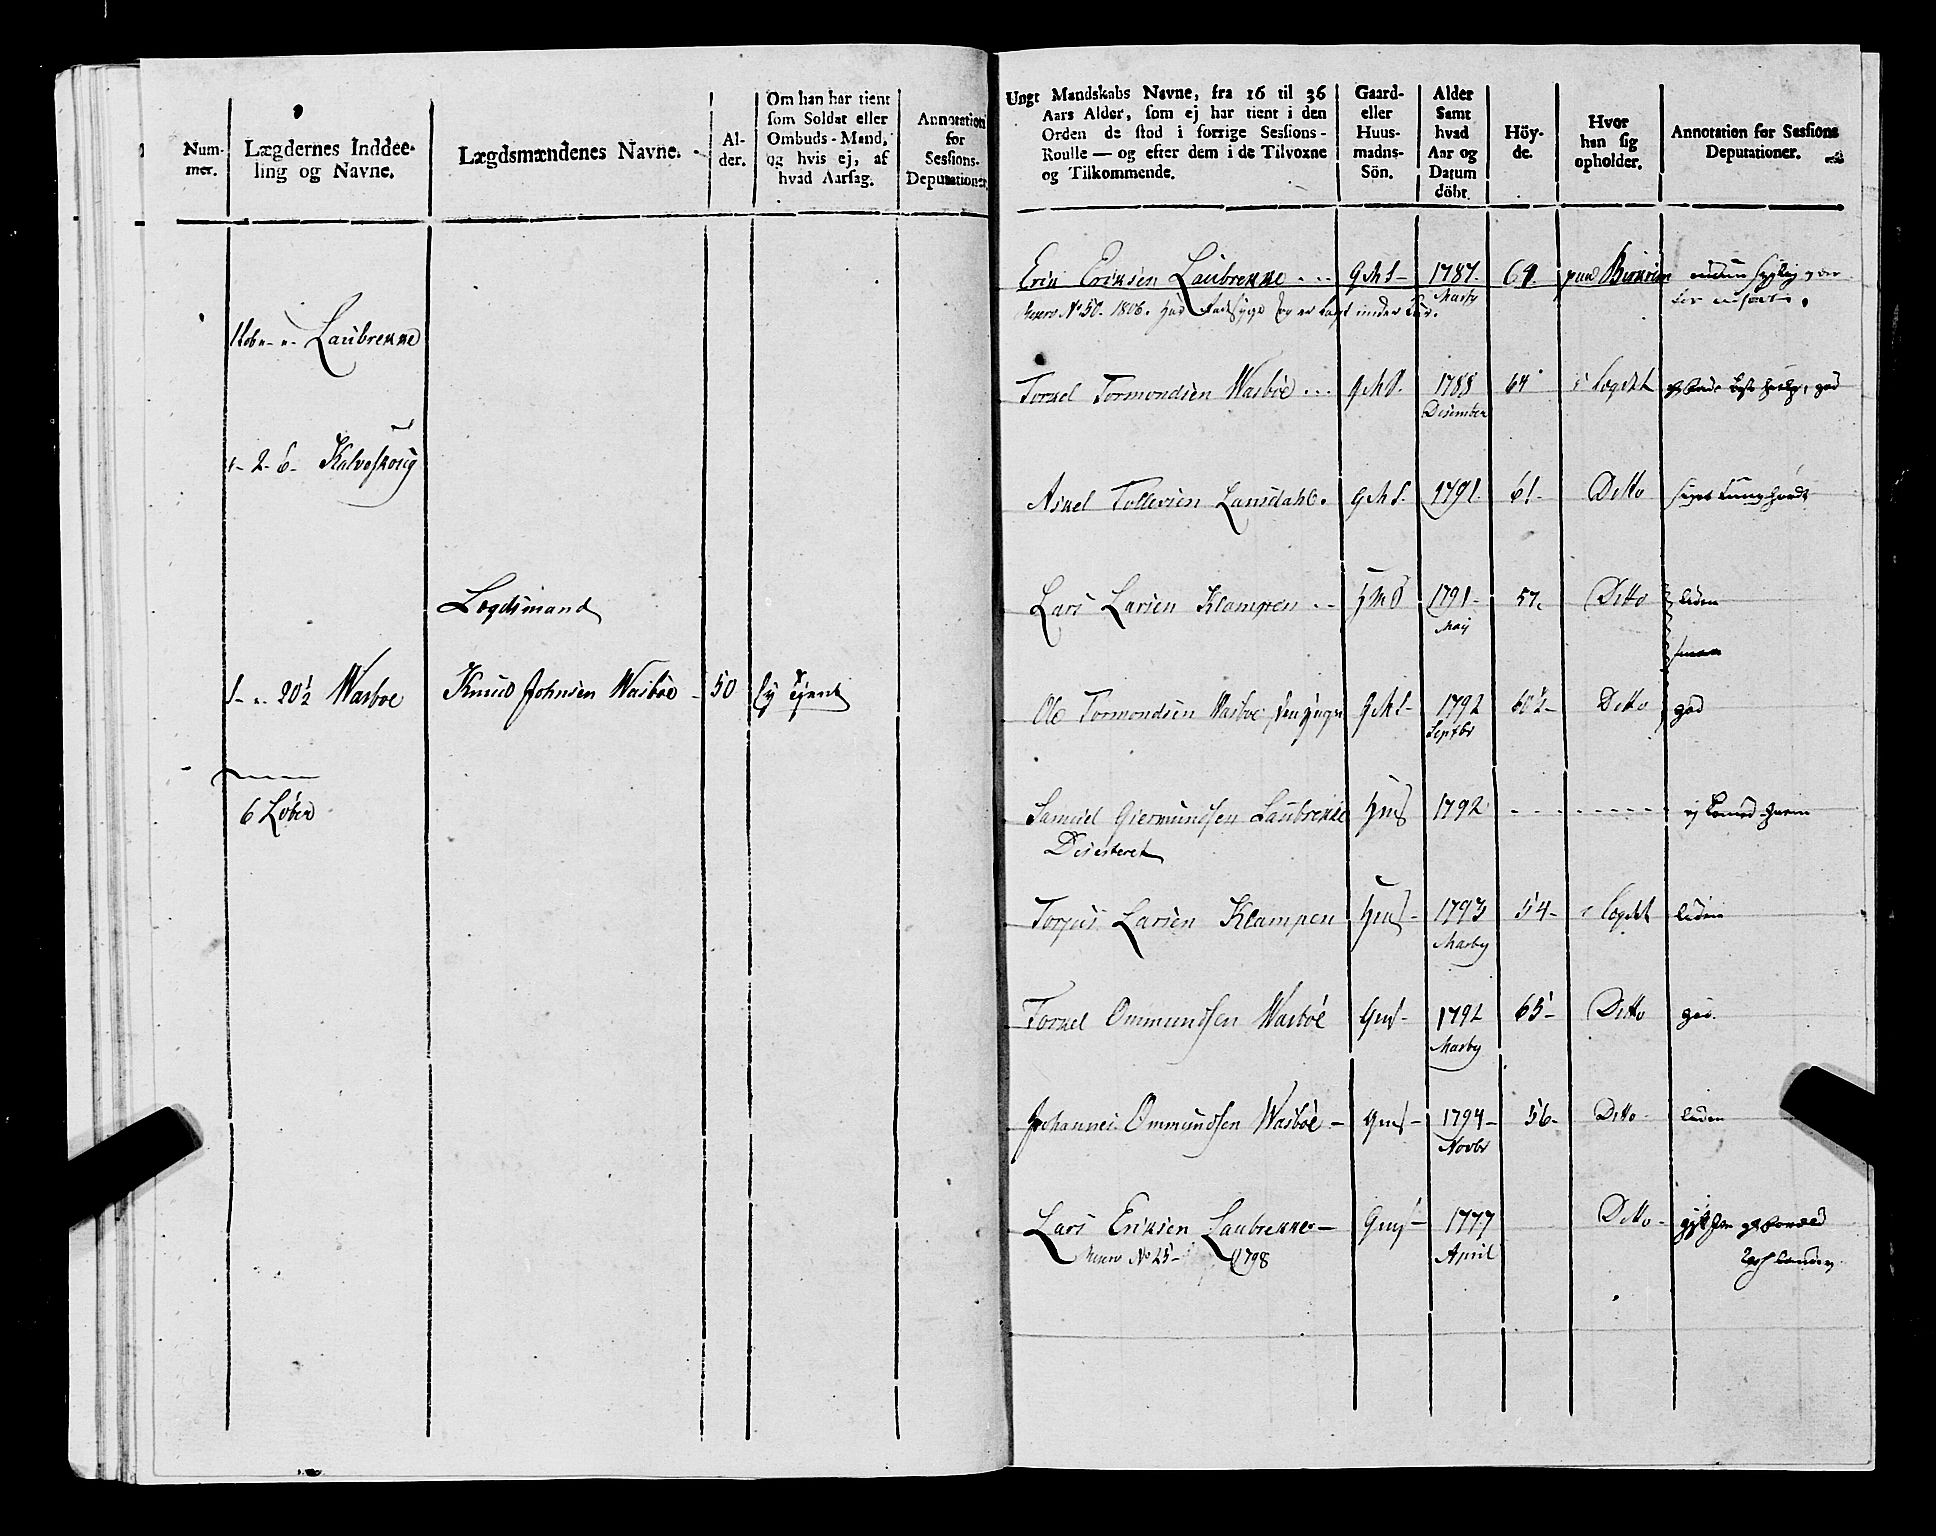 Num-
mer.
Lægdernes Inddee-
ling og Navne.
Lægdsmændenes Navne.
Al-
der.
Om han har tient
som Soldat eller
Ombuds-Mand,
og hvis ej, af
hvad Aarsag.
Annotation
for
Sessions-
Deputationer.
Laubrekke
2- 6- Kalveskoug
Lægdsmand
1- „ 20½ Wasboe
Knud Johnsen Wasbøe
50
Ej tjent
6 Løber
Ungt Mandskabs Navne, fra 16 til 36
Aars Alder, som ej har tient i den
Orden de stod i forrige Sessions-
Roulle — og efter dem i de Tilvoxne
og Tilkommende.
Gaard-
eller
Huus-
madns-
Sön.
Alder
Samt
hvad
Aar og
Datum
döbt.
Höy-
de.
Hvor
han sig
opholder.
Annotation for Sessions
Deputationer.
Erik Eriksen Laubrekke ... G M S- 1787. 64. paa Birkrim
Marty
No 50. 1806. har og er lagt under Cur.
Torkel Tormondsen Wasbøe ... G M S. 1788 64 i Lægdet
Desember
Askel Tollevsen Lansdahl. G M S. 1791. 61- Ditto
Lars Larsen Klampen -- H M S 1791- 57. Ditto liden
Maij
Ole Tormondsen Wasboe G M S- 1792 60½- Ditto god
Septbr
Samuel Giermundsen Laubrekke HmS 1792 - - - - - -
Desesteret
Torjus Larsen Klampen HmS- 1793 54- i Lægdet liden
Marty
Torkel Ommundsen Wasbøe GmS- 1792 65- Ditto god.
Marty
Johannes Ommundsen Wasbøe- GmS- 1794- 56- Ditto- liden
Novbr
Lars Eriksen Laubrekke- GmS- 1777 Ditto-
No 25- 1798 April